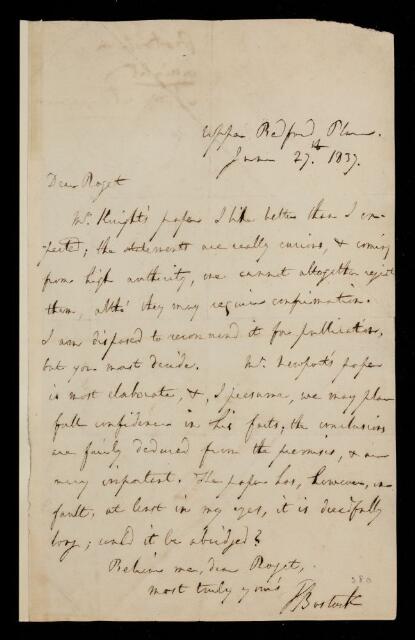 Upper Bedford Place.
June 27.th 1837.
Dear Roget
Mr. Knight's paper I like better than I ex-
pected; the statements are really curious, & coming
from high authority, we cannot altogether reject
them, altho' they may require confirmation.
I am disposed to recommend it for publication,
but you must decide. Mr. Newport's paper
is most elaborate, &, I presume, we may place
full confidence in his facts; the conclusions
are fairly deduced from the premises, & are
very important. The paper has, however, one
fault, at least in my eyes, it is dreadfully
long; could it be abridged?
Believe me, dear Roget,
most truly yours
J Bostock
380